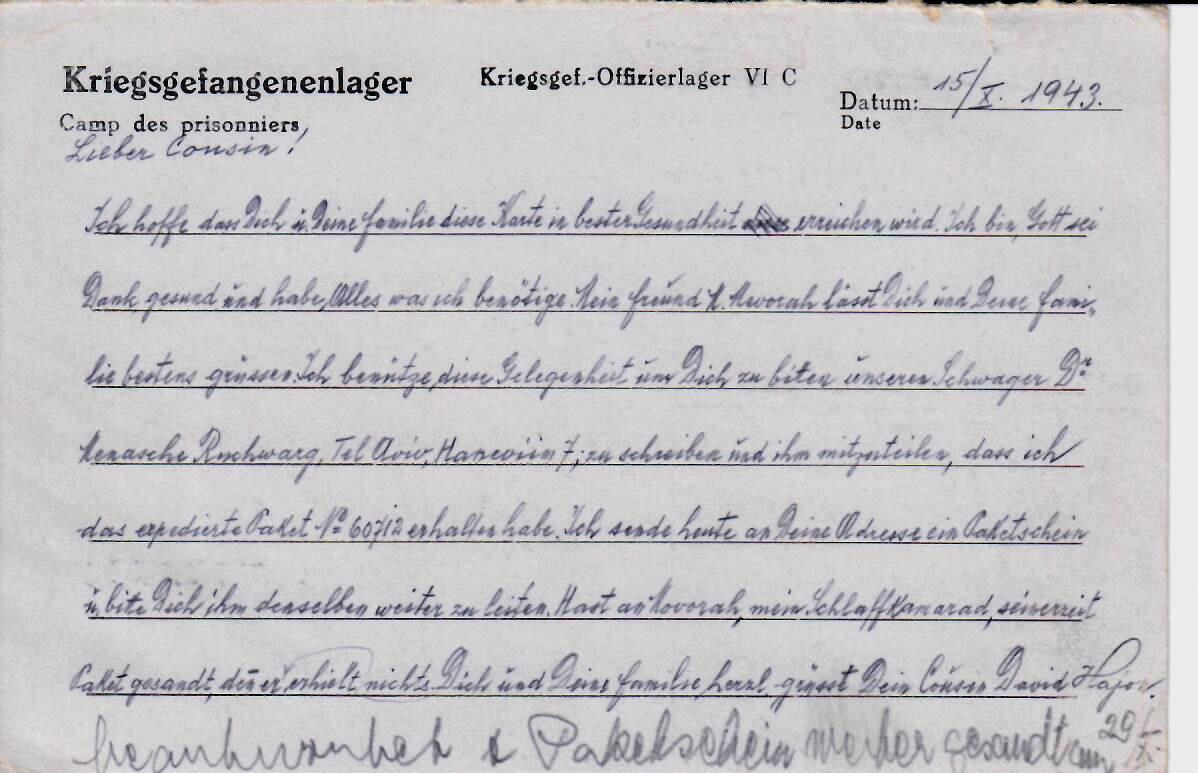 Kriegsgefangenenlager
Kriegsgef.-Offizierlager VI C
Datum: 15/X. 1943.
Camp des prisonniers
Date
Lieber Cousin!
Ich hoffe dass Dich u. Deine familie diese Karte in bester Gesundheit erreichen wird. Ich bin, Gott sei
Dank, gesund und habe, Alles was ich benötige. Mein freund M. Mevorah lässt Dich und Deine fami-
lie bestens grüssen. Ich benütze, diese Gelegenheit um Dich zu biten unseren Schwager Dr
Menasche Rochwarg, Tel Aviv, Haneviim 7, zu schreiben und ihm mitzuteilen, dass ich
das expedierte Paket No 60712 erhalten habe. Ich sende heute an Deine Adresse ein Paketschein
u. bite Dich ihm denselben weiter zu leiten. Hast an Movorah, mein Schlaffkamarad, seinerzeit
Paket gesandt, den er erhielt nichts. Dich und Deine familie, herzl. grüsst Dein Cousin David
beantwortet & Paketschein weiter gesandt am 29